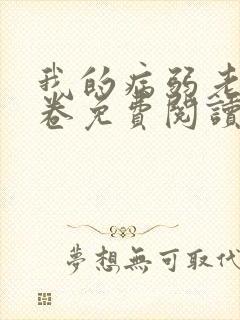 我的病弱老
卷免費閱讀
夢想無可取代